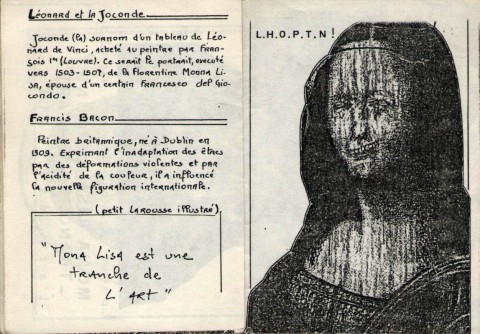 Léonard et la Joconde
Joconde (la) surnom d'un tableau de Léo-
nard de Vinci, acheté au peintre par Fran-
çois 1er (Louvre). Ce serait le portrait, executé
vers 1503-1507, de la florentine Moona Li-
sa, épouse d'un certain Francesco del Gio-
condo.
Francis Bacon
Peintre britannique, né à Dublin en
1909. Exprimant l'inadaptation des êtres
par des déformations violentes et par
l'acidité de la couleur, il a influencé
la nouvelle figuration internationale.
(petit Larousse illustré)
"Mona Lisa est une
tranche de
L'art"
L.H.O.P.T.N!